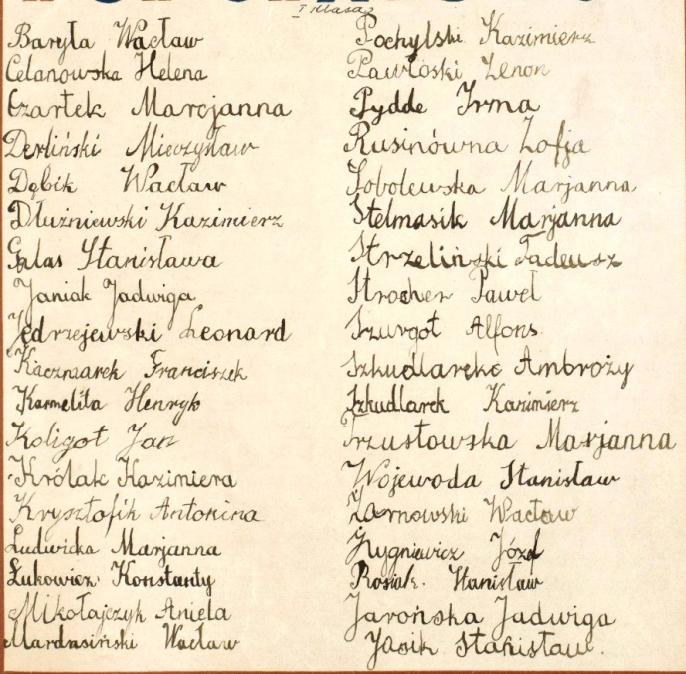 I Klasa
Baryła Wacław
Celanowska Helena
Czartek Marcjanna
Derliński Mieczysław
Dębik Wacław
Dłużniewski Kazimierz
Galas Stanisława
Janiak Jadwiga
Jędrzejewski Leonard
Kaczmarek Franciszek
Karmelita Henryk
Koligot Jan
Królak Kazimiera
Krysztofik Antonina
Ludwicka Marjanna
Łukowicz Konstanty
Mikołajczyk Aniela
Mardasiński Wacław
Pochylski Kazimierz
Pawłoski Zenon
Pydde Irma
Rusinówna Zofja
Sobolewska Marjanna
Stelmasik Marjanna
Strzeliński Tadeusz
Strocher Paweł
Szurgot Alfons
Szkudlarek Ambroży
Szkudlarek Kazimierz
Trzustowska Marjanna
Wojewoda Stanisław
Żarnowski Wacław
Zygniewicz Józef
Rosiak. Stanisław
Jarońska Jadwiga
Jasik Stanisław.